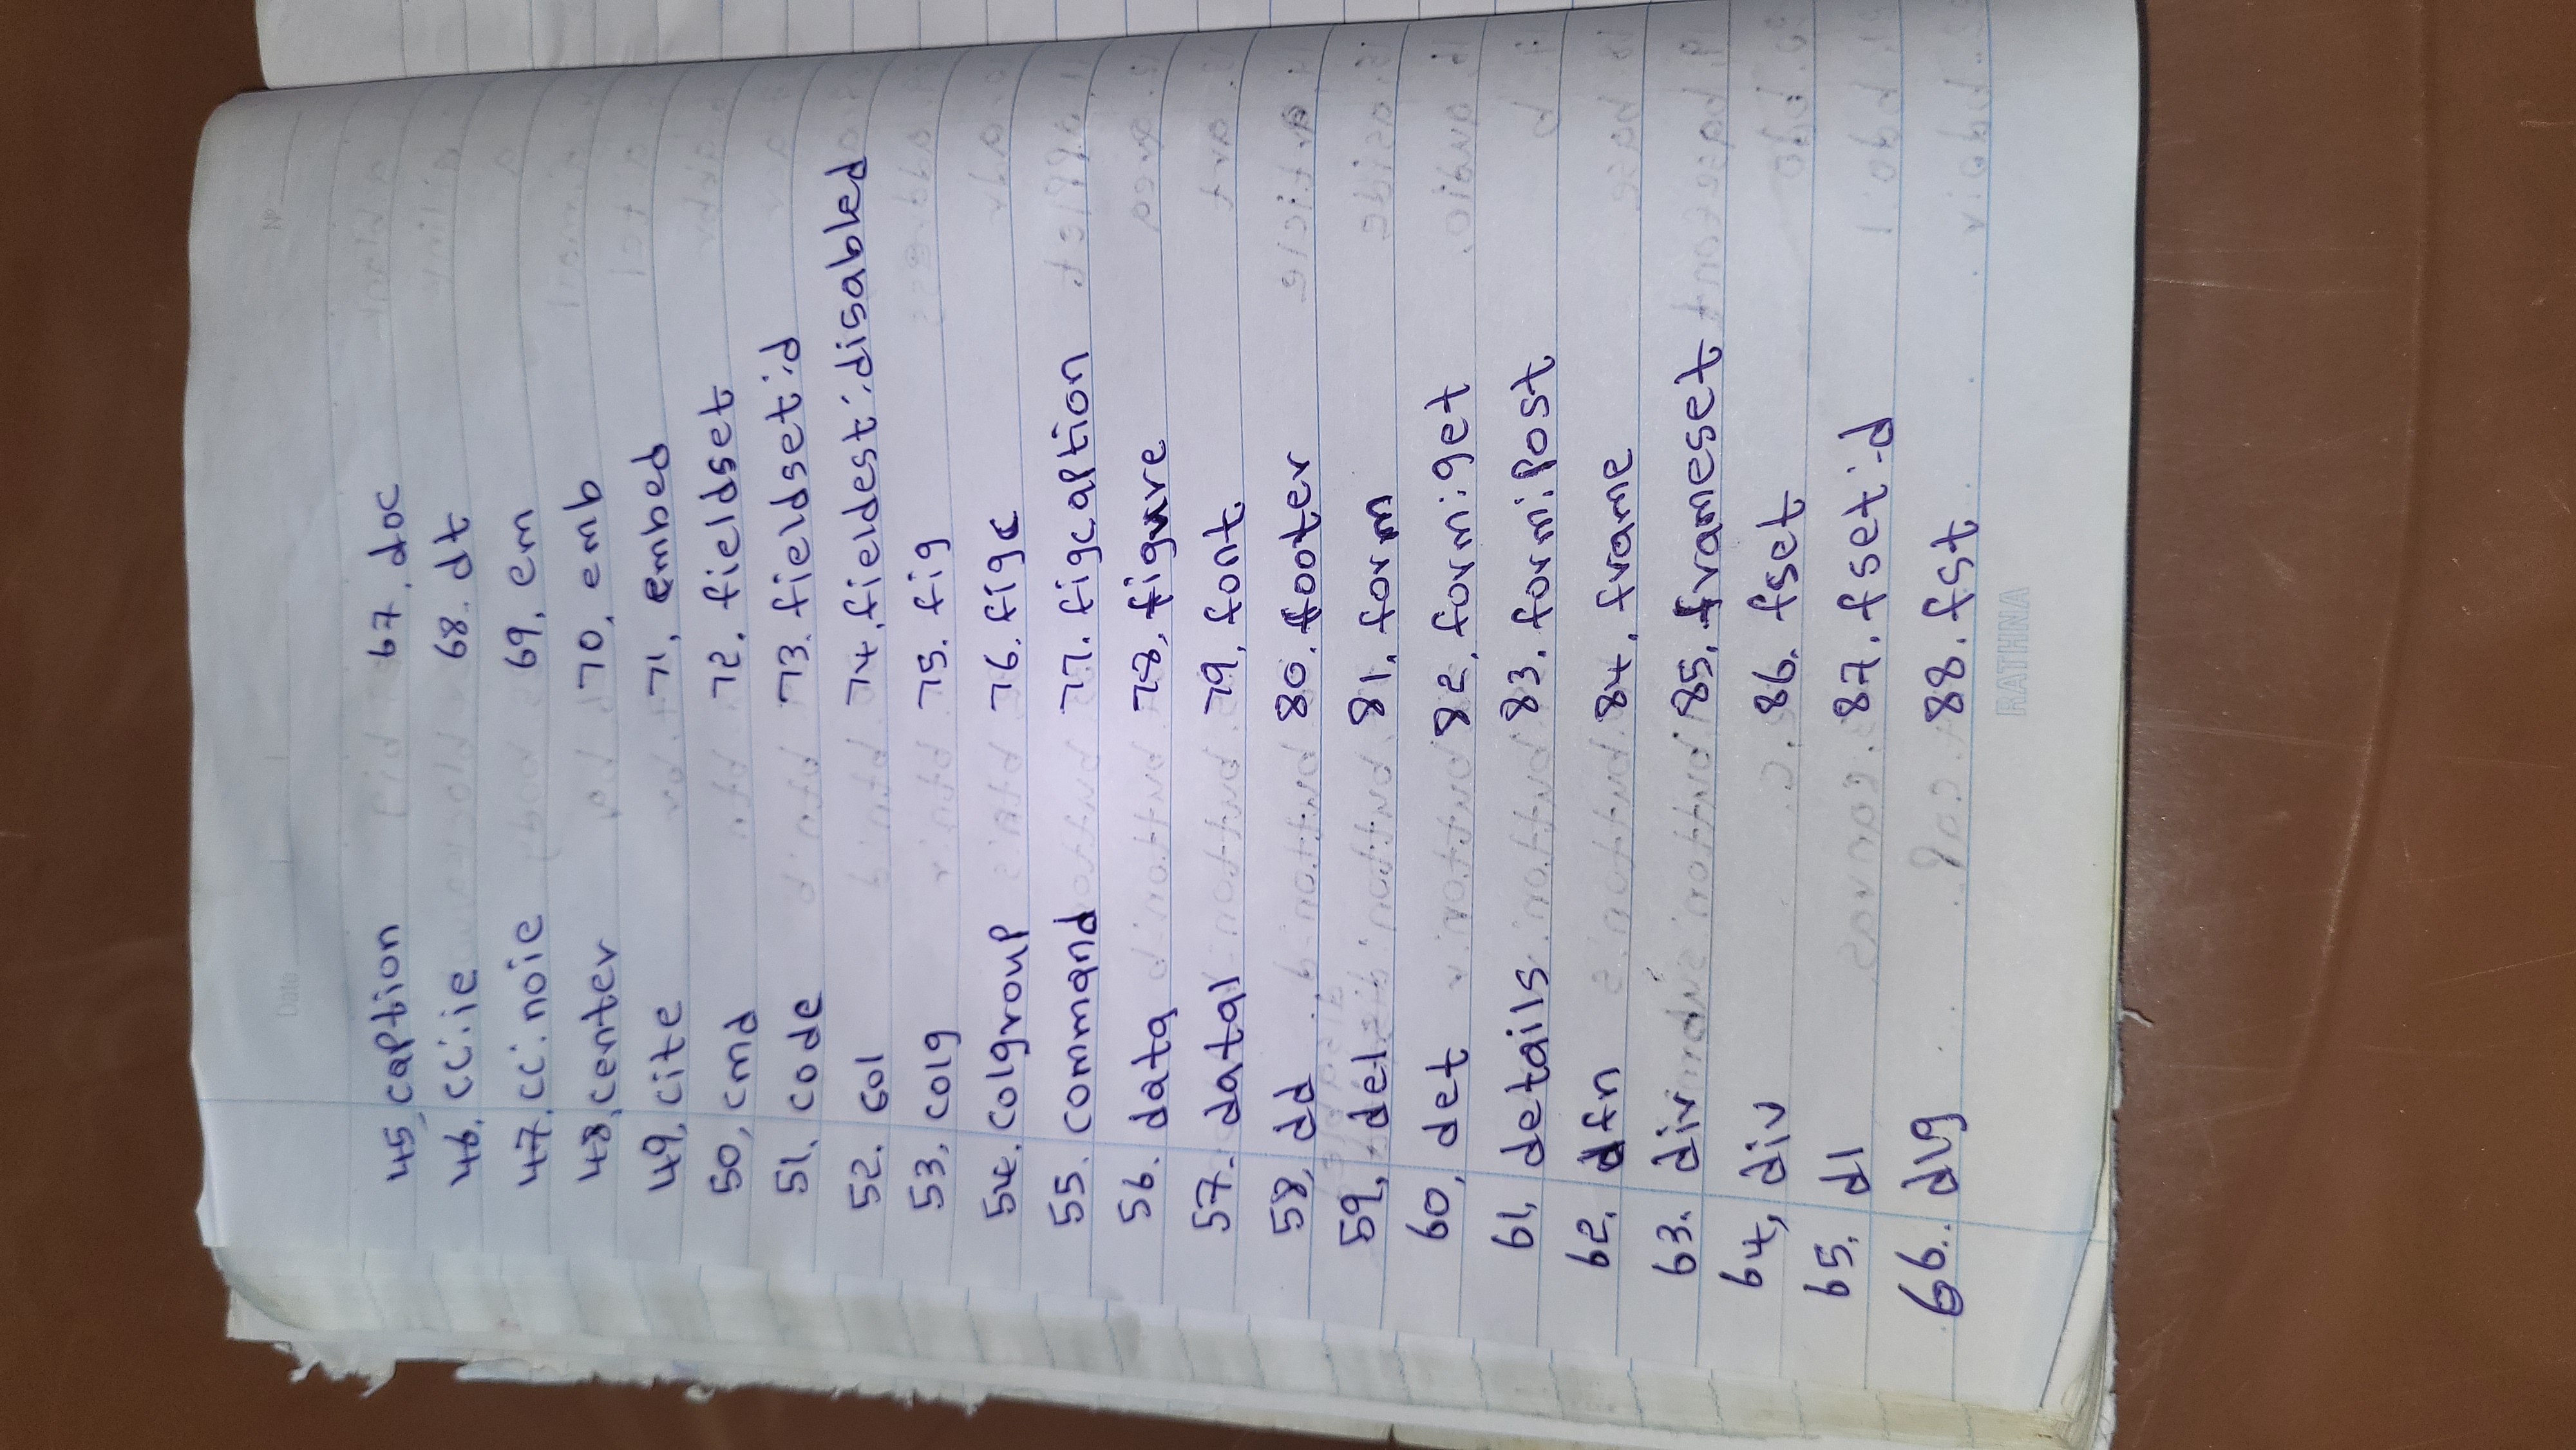 Date
Nº
45, caption
46. cc:ie
47. cc:noie
48, center
49, cite
50, cmd
51. code
52. col
53, colg
54. colgroup
55. command
56. data
57. datal
58, dd
59, del
60, det
61, details
62. dfn
63. div
64, div
65. dl
66. dlg
67. doc
68. dt
69, em
70, emb
71, embed
72. fieldset
73. fieldset:d
74, fieldest:disabled
75. fig
76. figc
77. figcaption
78, figure
79, font
80. footer
81. form
82, form:get
83. form:post
84. frame
85. frameset
86. fset
87. fset:d
88. fst
RATHNA